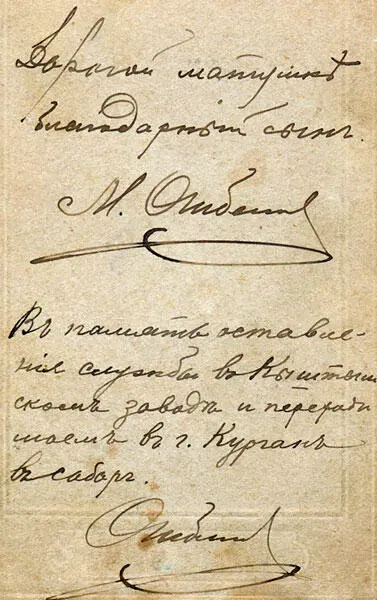 Дорогой матушкѣ
благодарный сынъ.
М.
Въ память оставле-
нія службы въ Кыштым
скомъ заводѣ и
моемъ въ г. Курганъ
въ соборъ.